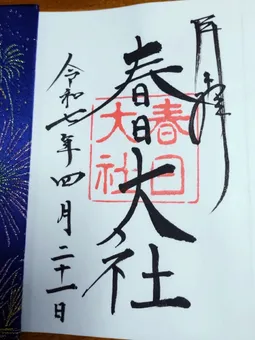 奉拝
春日大社
春日大社
令和七年四月二十一日